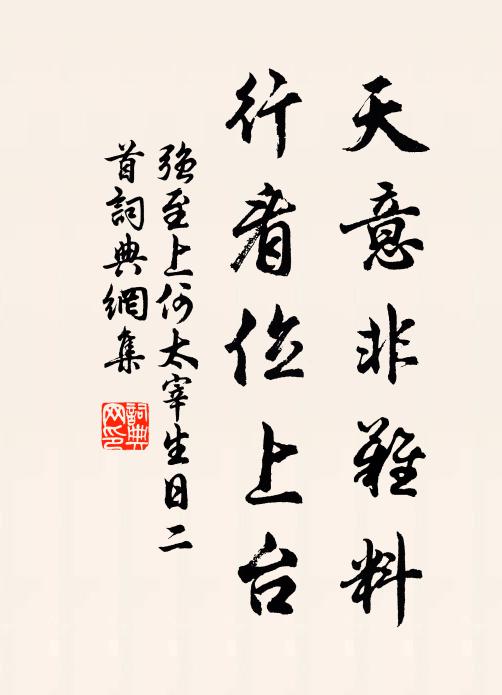 天意非難料
行看位上台
強至上何太宰生日二
首詞典網集
詞典
网印